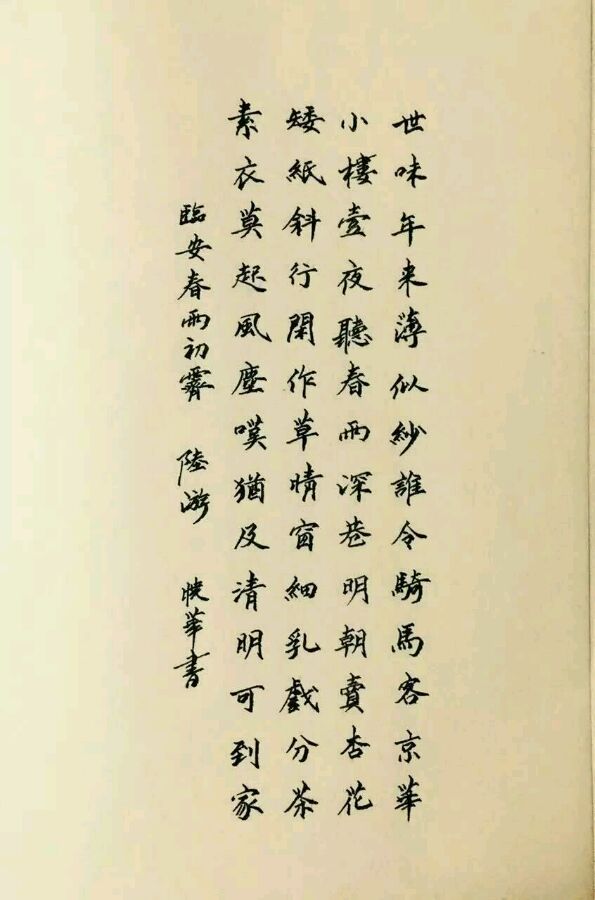 世味年来薄似紗誰令騎馬客京華
小樓壹夜聽春雨深巷明朝賣杏花
矮紙斜行閑作草晴窗細乳戲分茶
素衣莫起風塵嘆猶及清明可到家
臨安春雨初霽 陸游 映華書